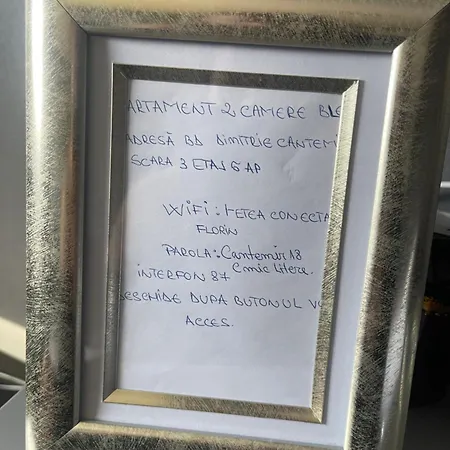 ARTAMENT 2 CAMERE BL
ADRESĂ BD DIMITRIE CANTEM
SCARA 3 ETAJ 6 AP
WIFI: RETEA CONECTA
FLORIN
PAROLA: Cantemir18
C mic litere.
INTERFON 87
DESCHIDE DUPA BUTONUL V
ACCES.